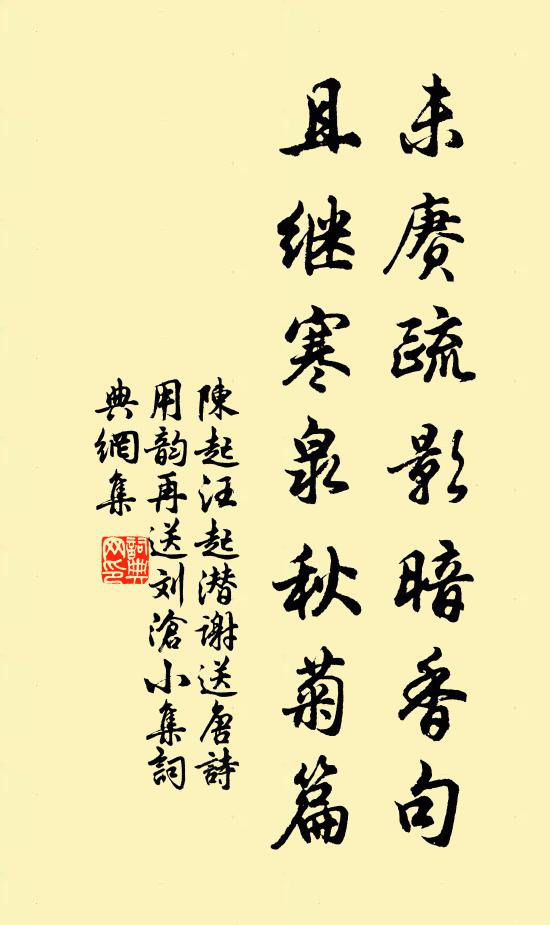 未赓疏影暗香句
且继寒泉秋菊篇
陳起汪起潜谢送唐詩
用韵再送刘滄小集詞
典網集
詞典
网印